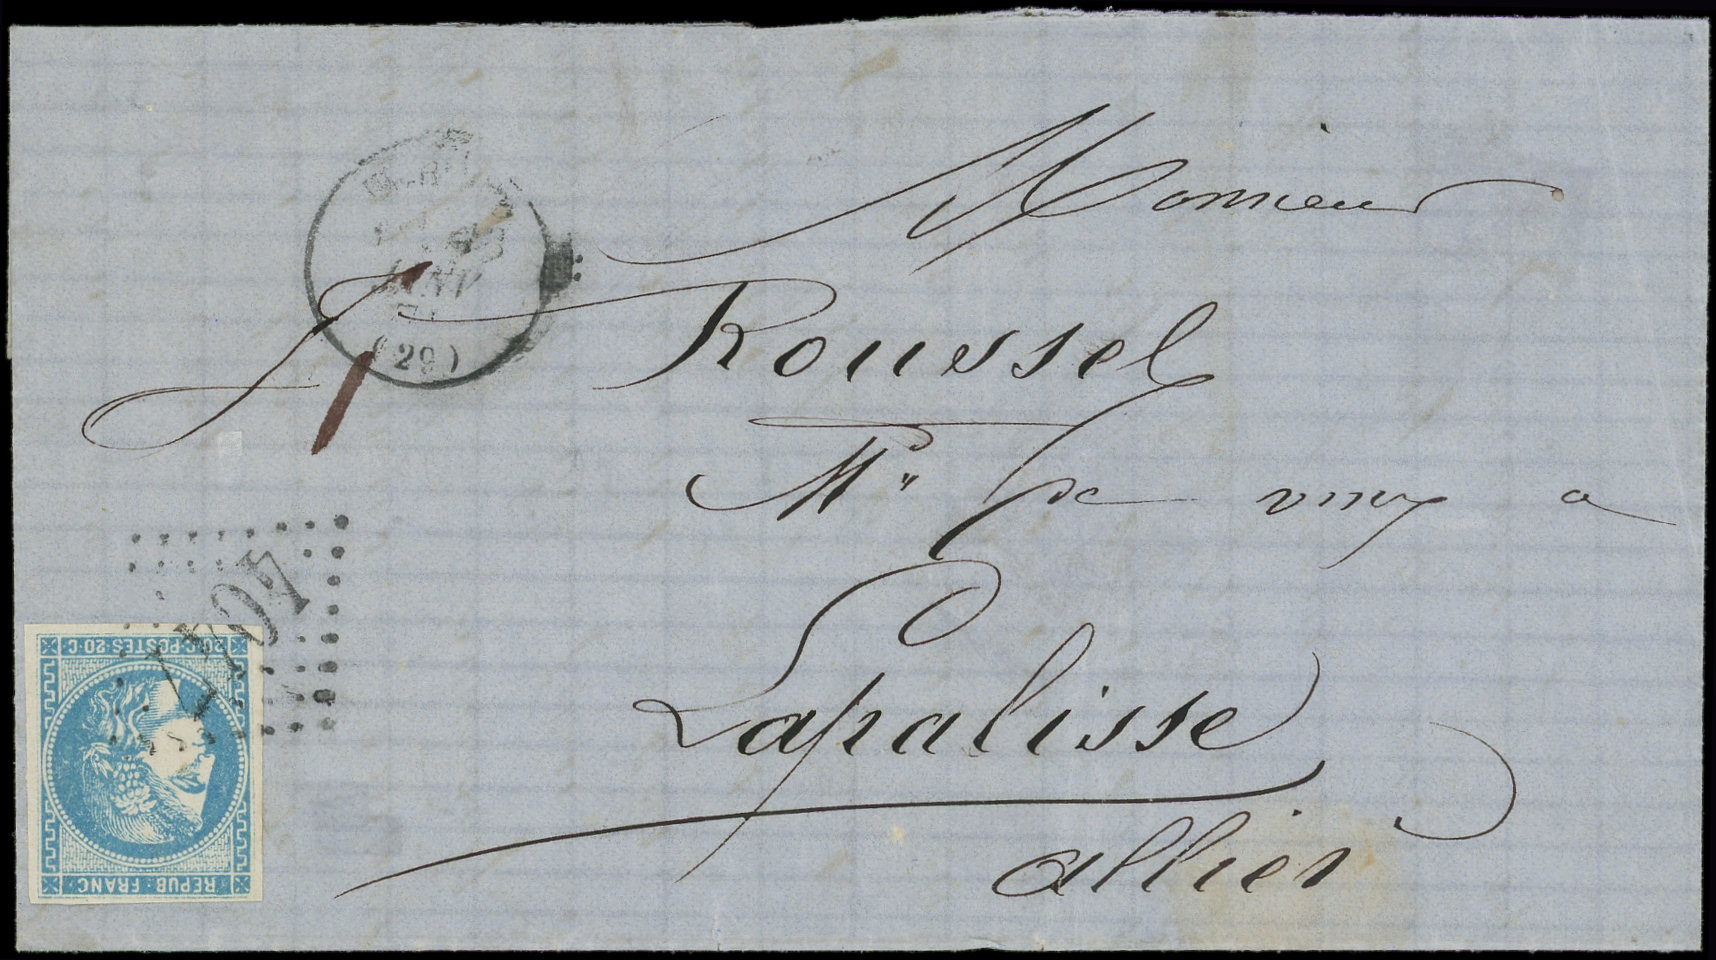 Monsieur
Roussel
Md de vins a
Lapalisse
allier
JANV
(29)
20·C·POSTES·20·C
REPUB·FRANC